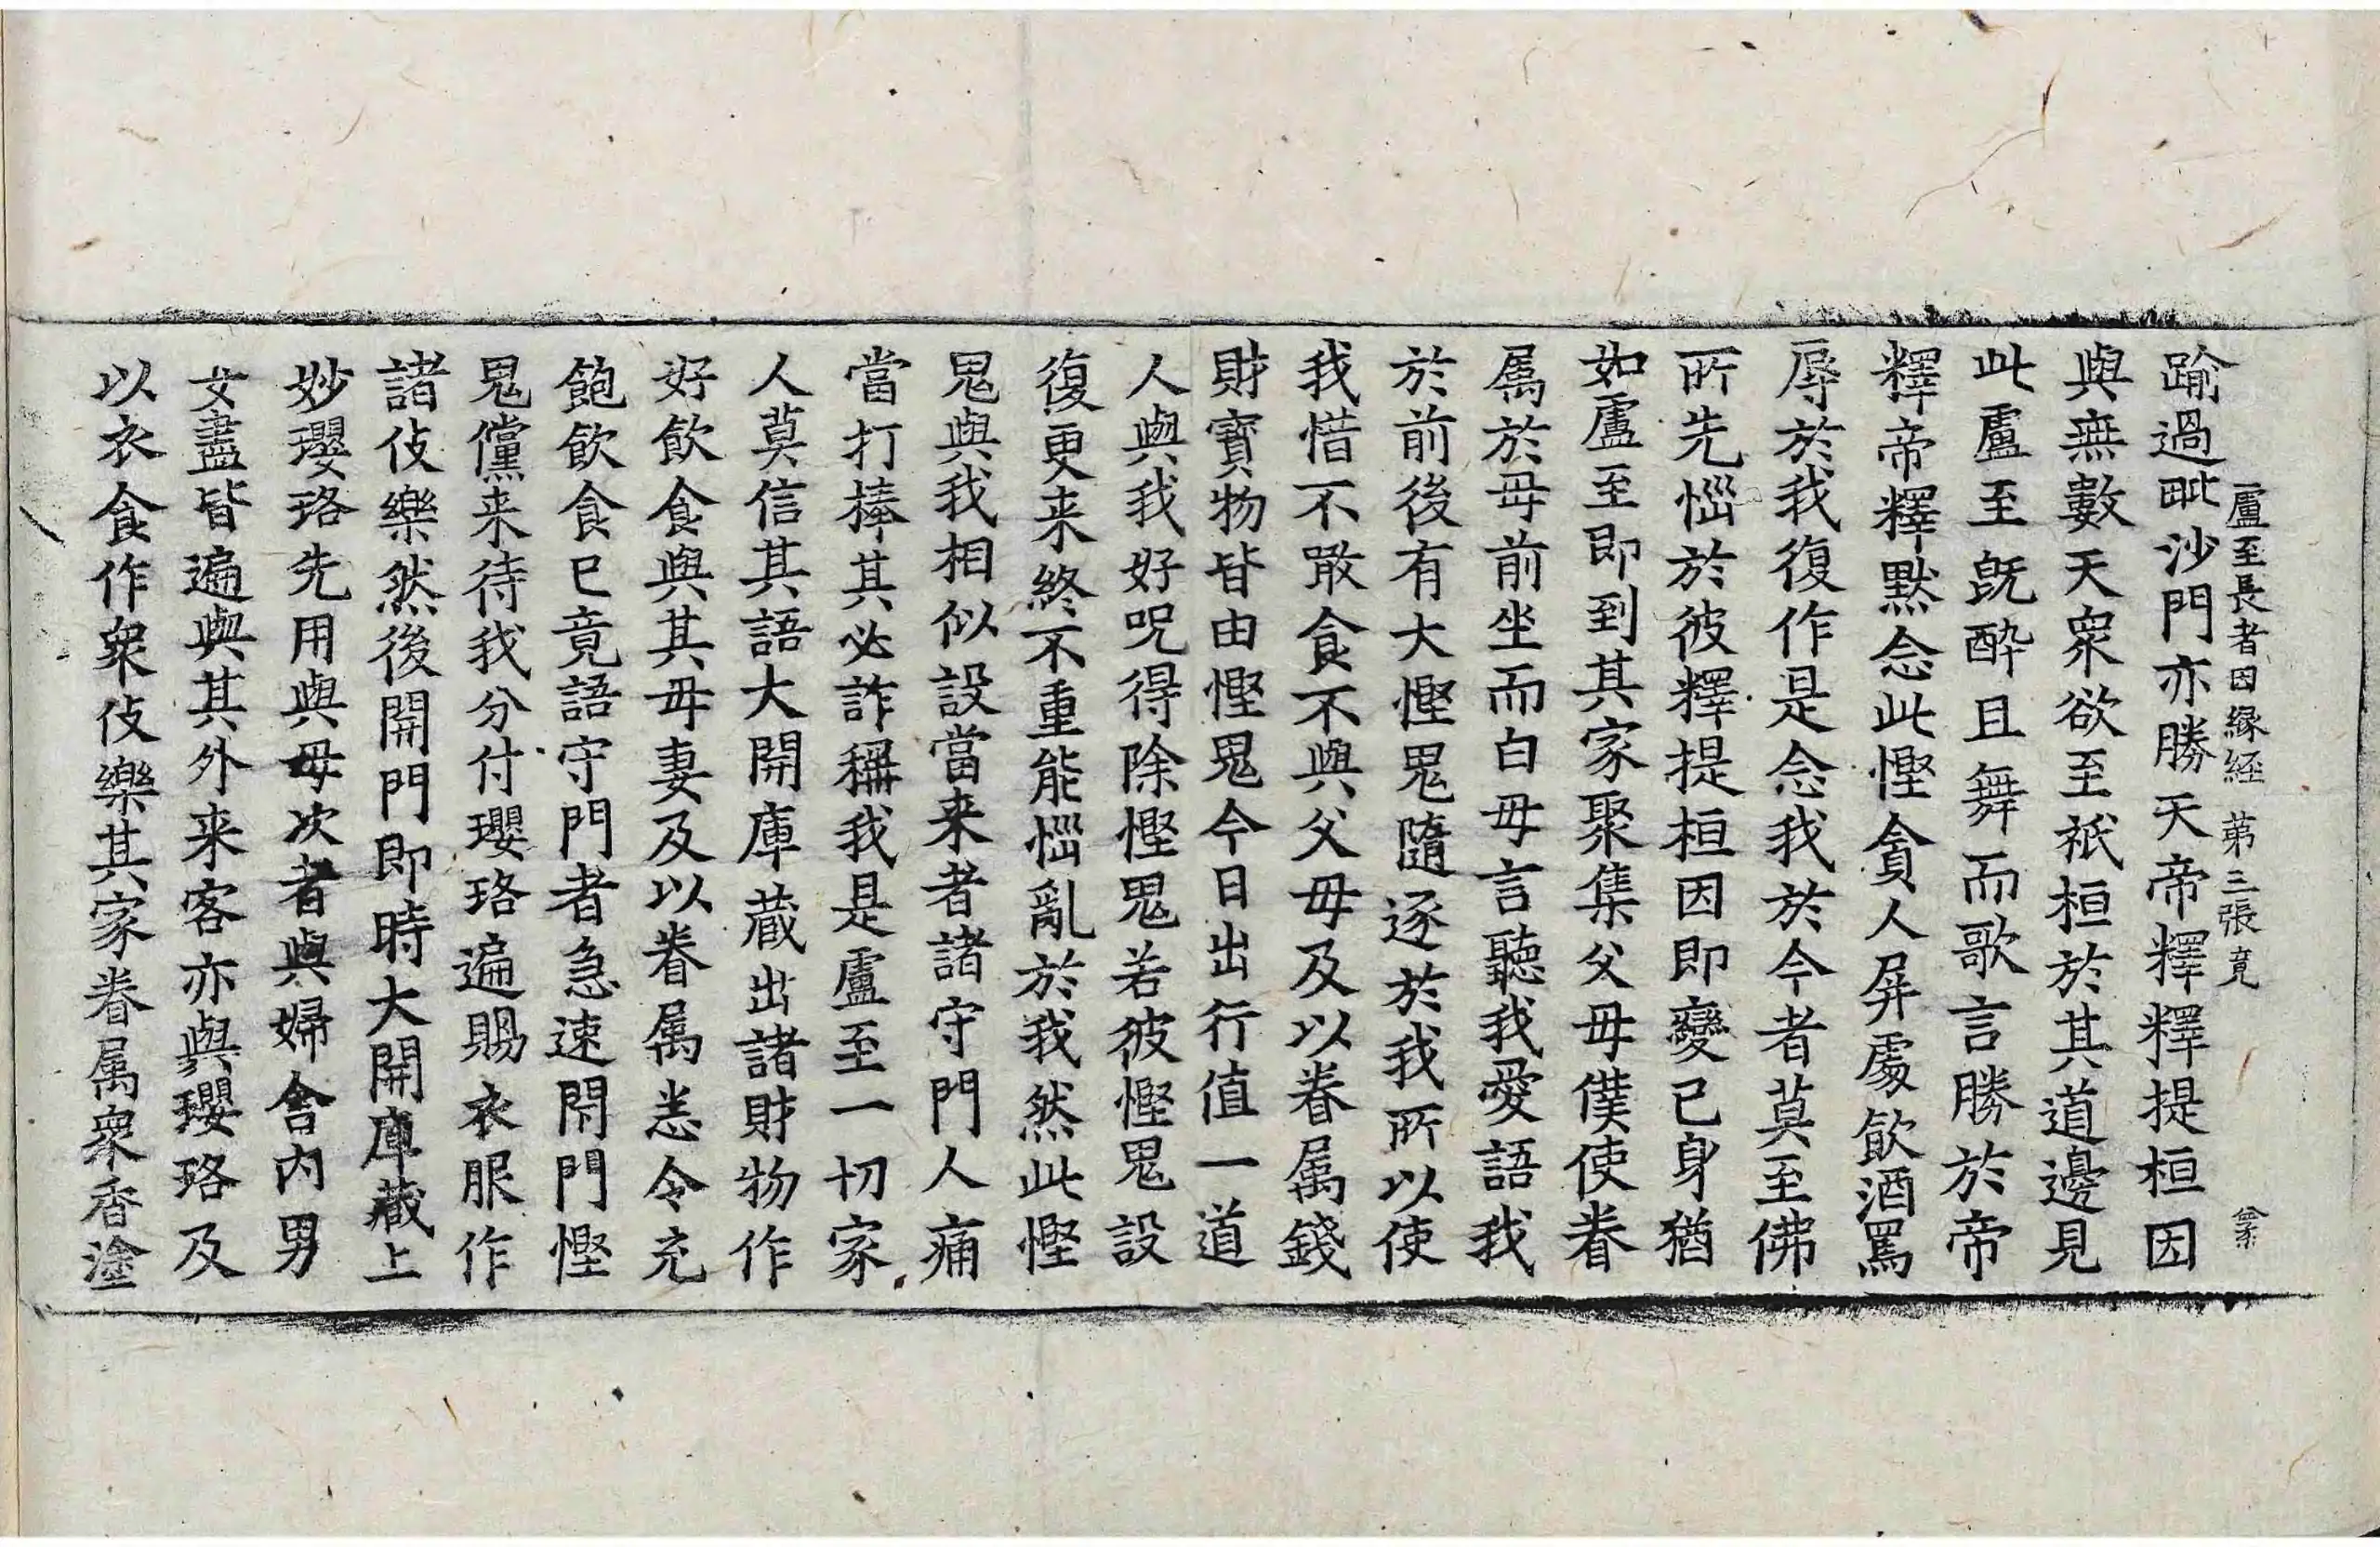 盧至長者因緣経 第三張 竟
踰過毗沙門亦勝天帝釋釋提桓因
與無數天衆欲至祇桓於其道邊見
此盧至旣醉且舞而歌言勝於帝
釋帝釋默念此慳貪人屏處飮酒罵
辱於我復作是念我於今者莫至佛
所先惱於彼釋提桓因即變已身猶
如盧至即到其家聚集父母僕使眷
属於母前坐而白母言聽我愛語我
於前後有大慳鬼隨逐於我所以使
我惜不敢食不與父母及以眷属錢
財寶物皆由慳鬼今日出行值一道
人與我好呪得除慳鬼若彼慳鬼設
復更来終不重能惱亂於我然此慳
鬼與我相似設當来者諸守門人痛
當打棒其必詐稱我是盧至一切家
人莫信其語大開庫蔵出諸財物作
好飮食與其母妻及以眷属悉令充
飽飮食已竟語守門者急速閇門慳
鬼儻来待我分付瓔珞遍賜衣服作
諸伎樂然後開門即時大開庫蔵上
妙瓔珞先用與母次者與婦舎內男
女盡皆遍與其外来客亦與瓔珞及
以衣食作衆伎樂其家眷属衆香塗